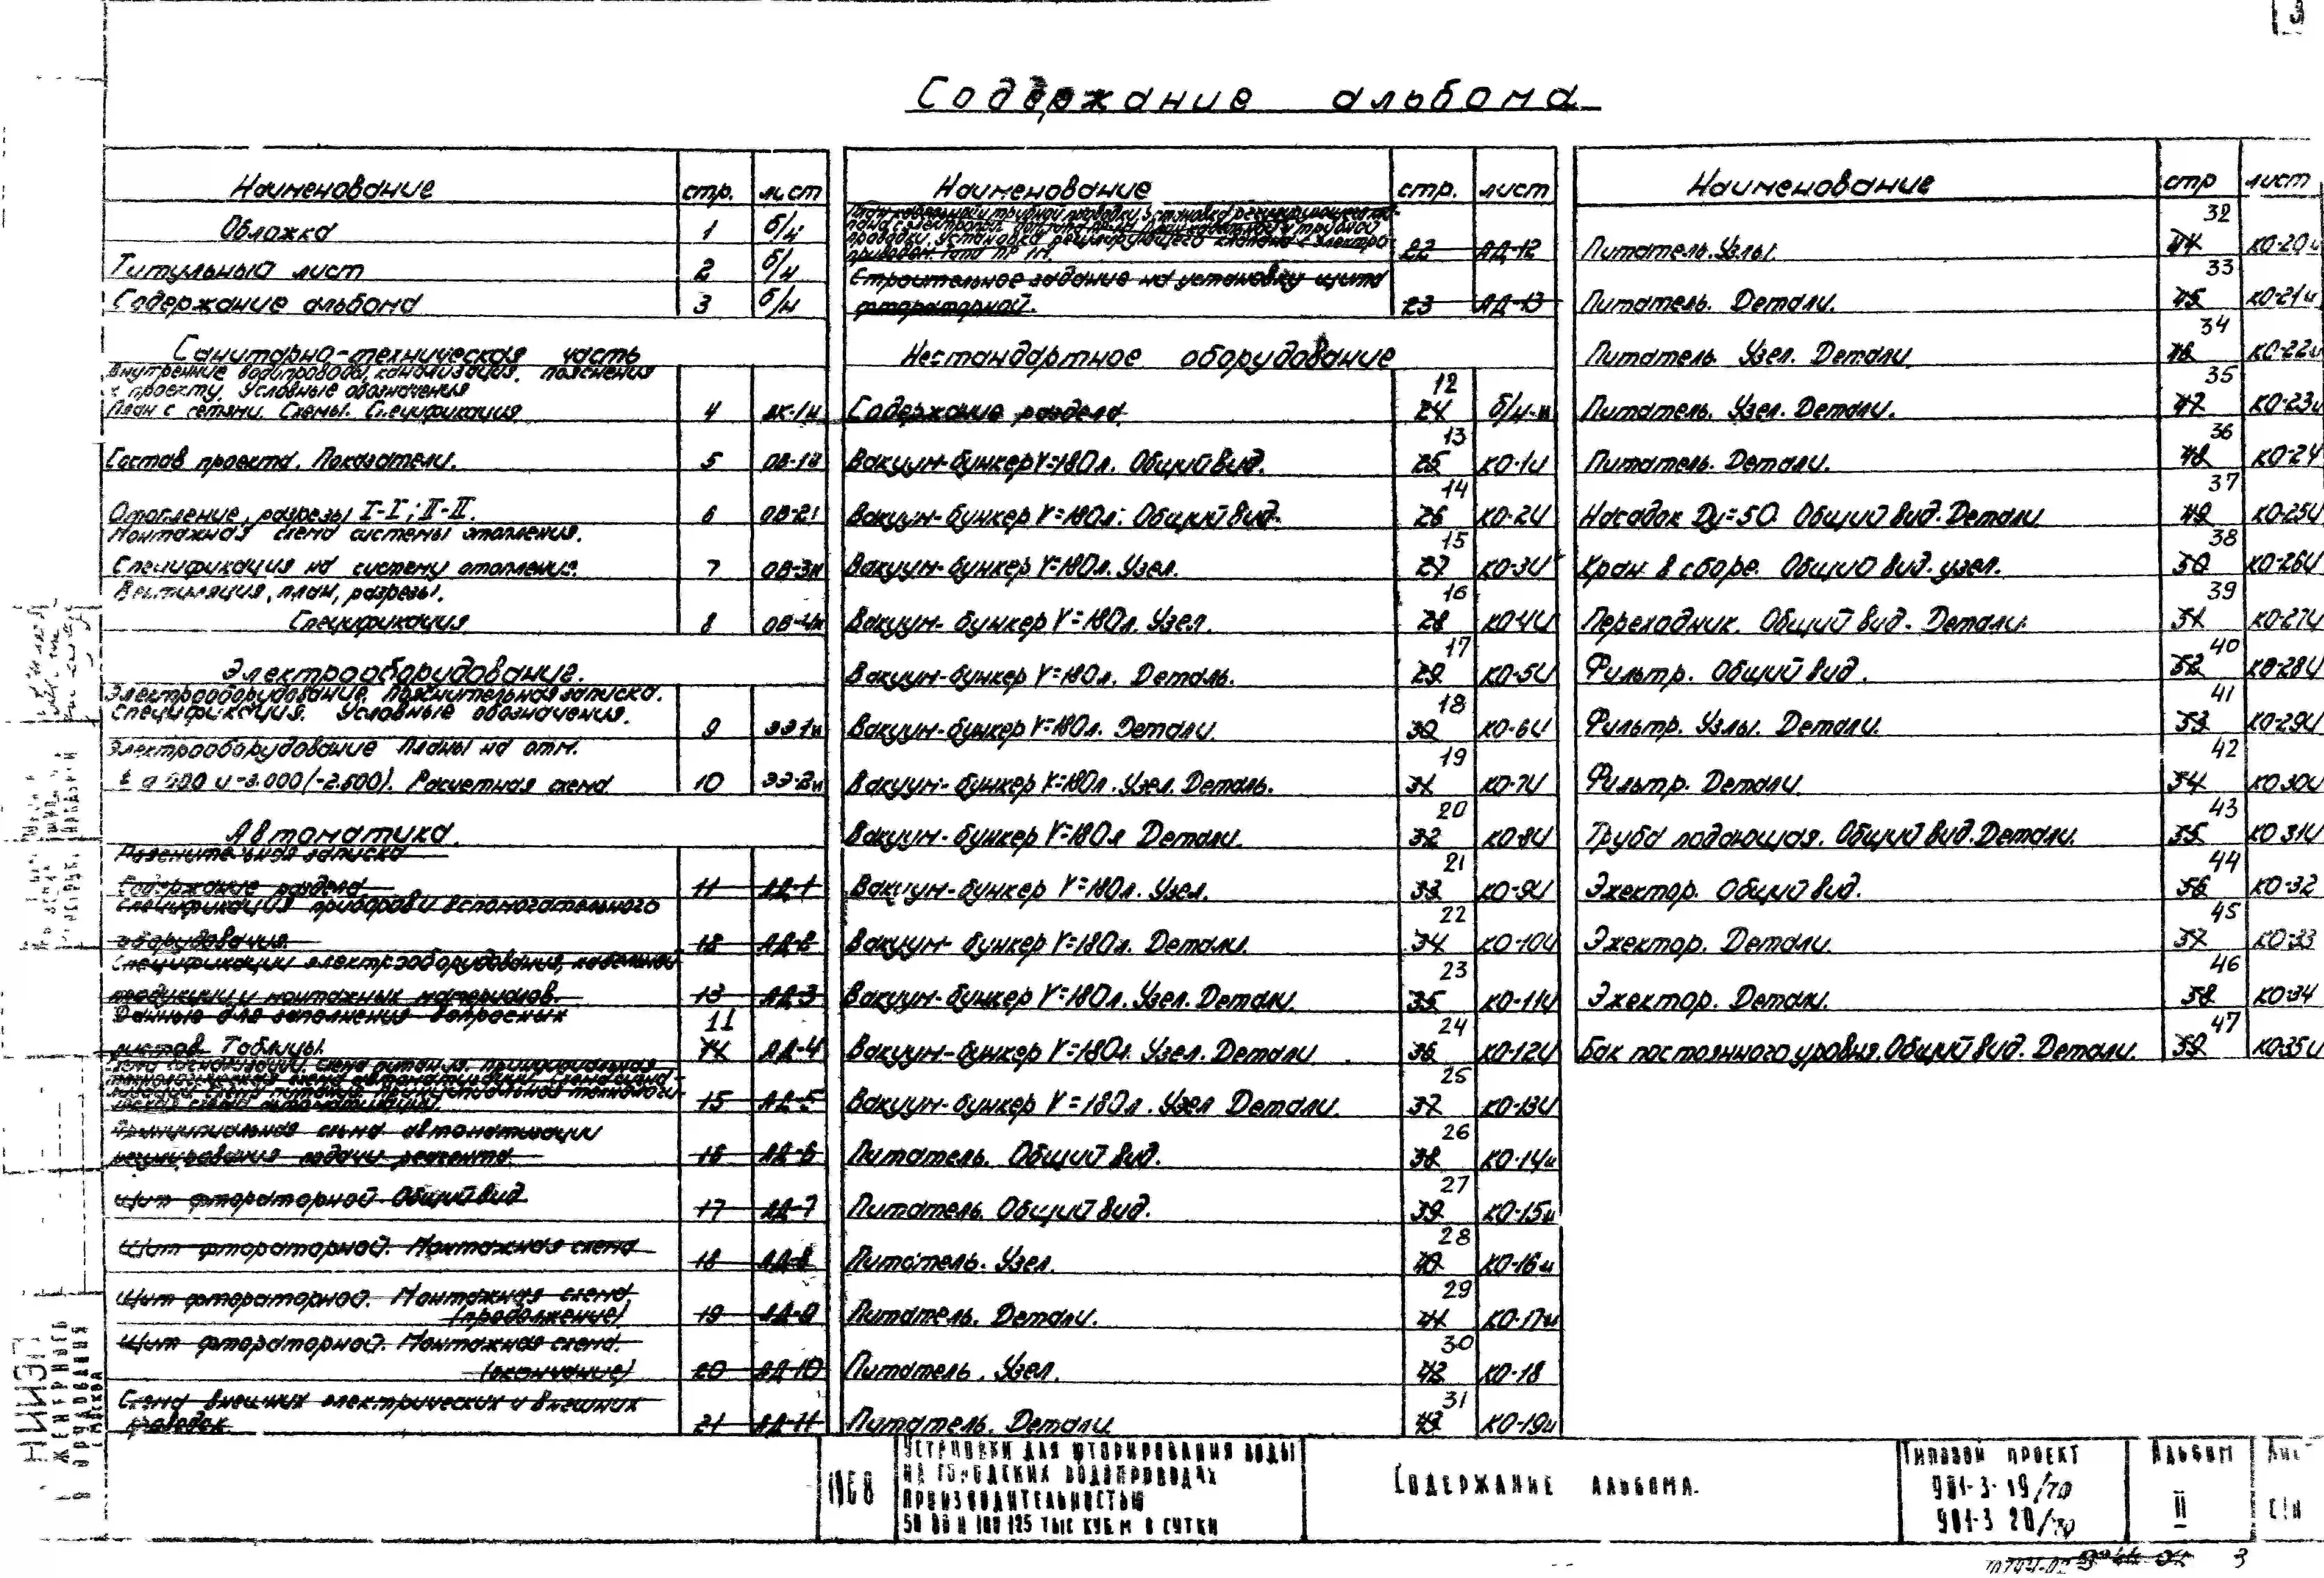 3
Содержание альбома
Наименование стр. лист
Облажка 1 б/н
Титульный лист 2 б/н
Содержание альбома 3 б/н
Санитарно-техническая часть
Внутренние водопроводы, канализация. пояснения
к проекту. Условные обозначения
План с сетями. Схемы. Спецификация 4 ВК-1и
Состав проекта. Показатели. 5 ОВ-1и
Отопление, разрезы I-I; II-II. 6 ОВ-2и
Монтажная схема системы отопления.
Спецификация на систему отопления. 7 ОВ-3и
Вентиляция, план, разрезы.
Спецификация 8 ОВ-4и
Электрооборудование.
Электрооборудование. Пояснительная записка.
Спецификация. Условные обозначения. 9 ЭЭ1и
Электрооборудование Планы на отм.
и -3.000/-2.500/. Расчетная схема 10 ЭЭ-2и
Автоматика.
Пояснительная записка
Содержание раздела 11 АД-1
Спецификация приборов и вспомогательного
оборудования. 12 АД-2
Спецификации электрооборудования, кабельной
продукции и монтажных материалов. 13 АД-3
Данные для заполнения вопросных 11
листов. Таблицы. 14 АД-4
15 АД-5
Принципиальная схема автоматизации
регулирования подачи реагента. 16 АД-6
Щит фтораторной. Общий вид 17 АД-7
Щит фтораторной. Монтажная схема 18 АД-8
Щит фтораторной. Монтажная схема
(продолжение) 19 АД-9
Щит фтораторной. Монтажная схема.
(окончание) 20 АД-10
Схема внешних электрических и внешних
проводок. 21 АД-11
Наименование стр. лист
План кабельной и трубной проводки. Установка регулирующего
проводки. Установка регулирующего клапана с электро-
приводом типа ПР 1М. 22 АД-12
Строительное задание на установку щита
фтораторной. 23 АД-13
Нестандартное оборудование
12
Содержание раздела 24 б/н-и
13
Вакуум-бункер V=180л. Общий вид. 25 КО-1и
14
Вакуум-бункер V=180л. Общий вид. 26 КО-2и
15
Вакуум-бункер V=180л. Узел. 27 КО-3и
16
Вакуум-бункер V=180л. Узел. 28 КО-4и
17
Вакуум-бункер V=180л. Деталь. 29 КО-5и
18
Вакуум-бункер V=180л. Детали. 30 КО-6и
19
Вакуум-бункер V=180л. Узел. Деталь. 31 КО-7и
20
Вакуум-бункер V=180л Детали. 32 КО-8и
21
Вакуум-бункер V=180л. Узел. 33 КО-9и
22
Вакуум-бункер V=180л. Детали. 34 КО-10и
23
Вакуум-бункер V=180л. Узел. Детали. 35 КО-11и
24
Вакуум-бункер V=180л. Узел. Детали 36 КО-12и
25
Вакуум-бункер V=180л. Узел Детали. 37 КО-13и
26
Питатель. Общий вид. 38 КО-14и
27
Питатель. Общий вид. 39 КО-15и
28
Питатель. Узел. 40 КО-16и
29
Питатель. Детали. 41 КО-17и
30
Питатель. Узел. 42 КО-18
31
Питатель. Детали 43 КО-19и
Наименование стр лист
32
Питатель. Узлы. 44 КО-20и
33
Питатель. Детали. 45 КО-21и
34
Питатель Узел. Детали 46 КО-22и
35
Питатель. Узел. Детали. 47 КО-23и
36
Питатель. Детали. 48 КО-24
37
Насадок Dу=50. Общий вид. Детали 49 КО-25и
38
Кран в сборе. Общий вид. узел. 50 КО-26и
39
Переходник. Общий вид. Детали. 51 КО-27и
40
Фильтр. Общий вид. 52 КО-28и
41
Фильтр. Узлы. Детали. 53 КО-29и
42
Фильтр. Детали 54 КО30и
43
Труба подающая. Общий вид. Детали. 55 КО 31и
44
Эжектор. Общий вид. 56 КО-32
45
Эжектор. Детали. 57 КО-33
46
Эжектор. Детали. 58 КО-34
47
Бак постоянного уровня. Общий вид. Детали. 59 КО35и
1968
Установки для фторирования воды
на городских водопроводах
производительностью
50 80 и 100 125 тыс куб.м в сутки
Содержание альбома.
Типовой проект
901-3-19/70
901-3 20/70
Альбом
II
Лист
3